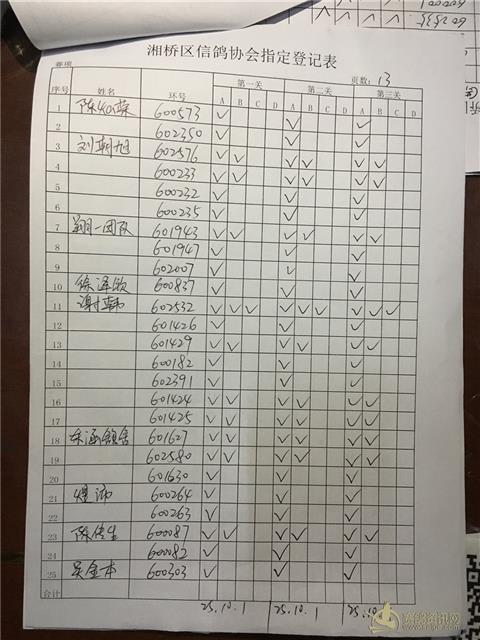 湘桥区信鸽协会指定登记表
页数: 13
序号 姓名 环号 第一关 第二关 第三关
A B C D A B C D A B C D
1 600573 ✓ ✓ ✓
2 602350 ✓ ✓ ✓
3 刘朝旭 602576 ✓ ✓ ✓ ✓ ✓ ✓
4 600233 ✓ ✓ ✓ ✓ ✓ ✓
5 600232 ✓ ✓ ✓
6 600235 ✓ ✓ ✓
7 翔一团队 601943 ✓ ✓ ✓ ✓ ✓ ✓
8 601947 ✓ ✓ ✓
9 602007 ✓ ✓ ✓
10 600837 ✓ ✓ ✓
11 谢韩 602532 ✓ ✓ ✓ ✓ ✓ ✓ ✓ ✓ ✓
12 601426 ✓ ✓ ✓
13 601429 ✓ ✓ ✓ ✓ ✓ ✓
14 600182 ✓ ✓ ✓
15 602391 ✓ ✓ ✓
16 601424 ✓ ✓ ✓ ✓ ✓ ✓
17 601425 ✓ ✓ ✓ ✓ ✓ ✓
18 601627 ✓ ✓ ✓ ✓ ✓ ✓
19 602580 ✓ ✓ ✓ ✓ ✓ ✓
20 601630 ✓ ✓ ✓
21 600264 ✓ ✓ ✓
22 600263 ✓ ✓ ✓
23 600087 ✓ ✓ ✓ ✓ ✓ ✓
24 600082 ✓ ✓ ✓
25 吴金本 600303 ✓ ✓ ✓
合计
25.10.1 25.10.1 25.10